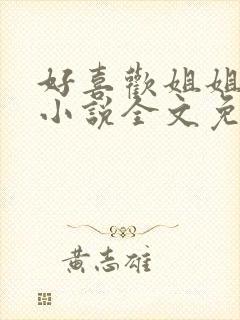 好喜歡姐姐
小說全文免
黃志雄